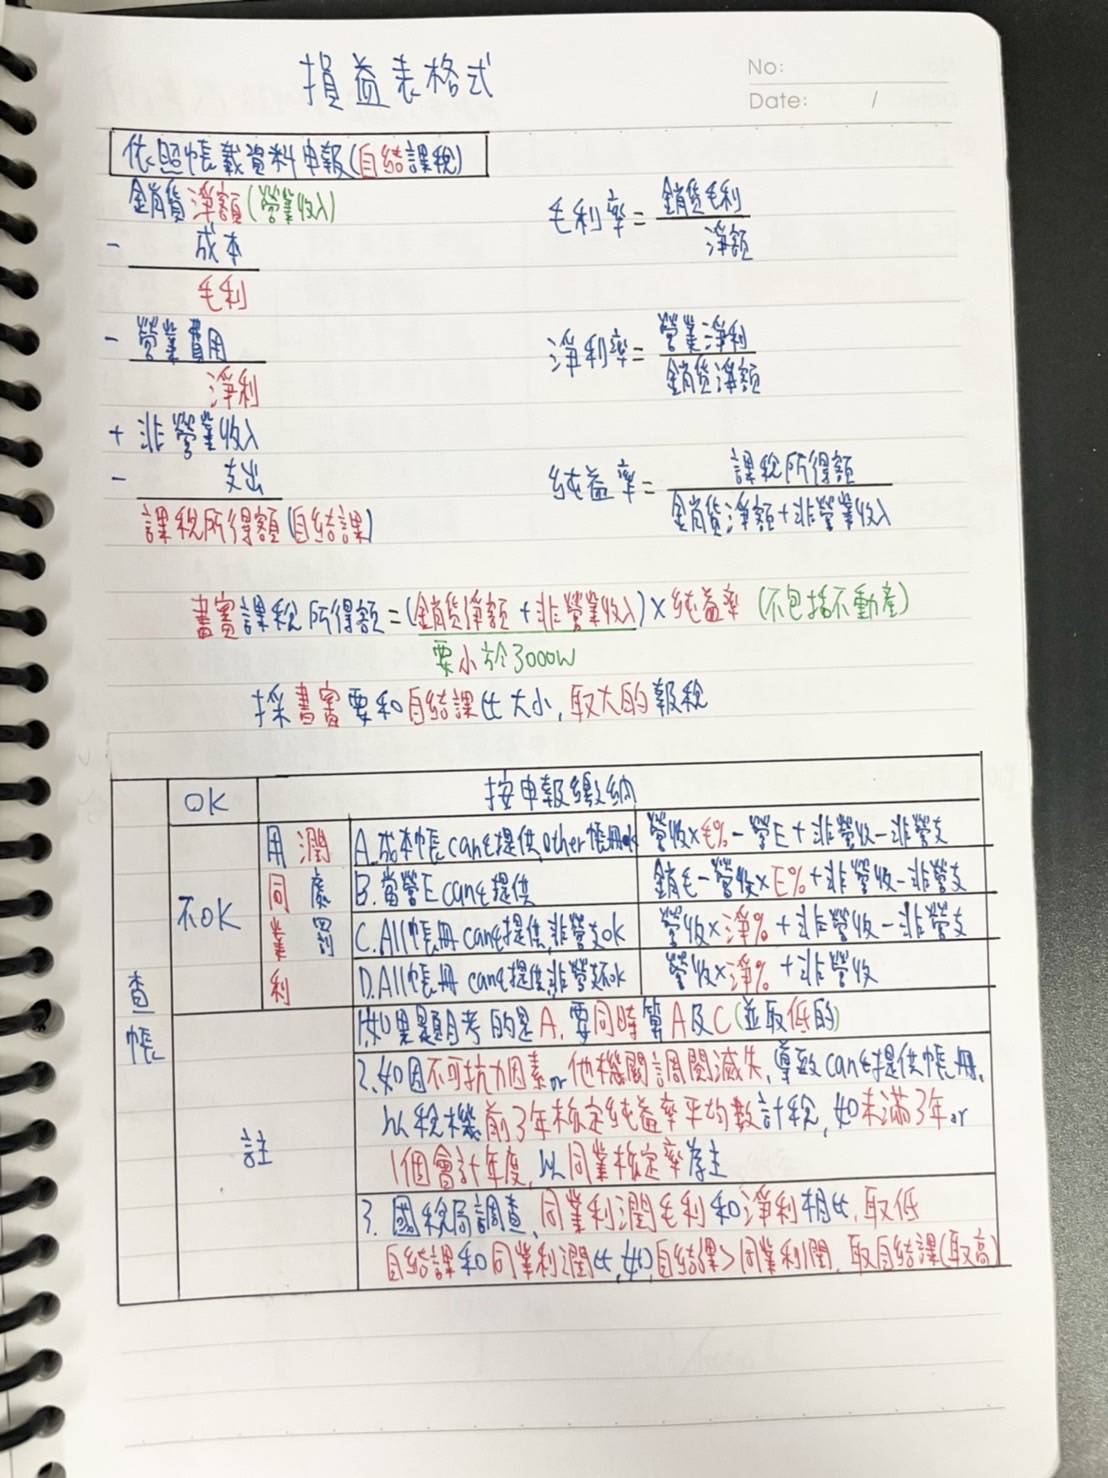 損益表格式
No:
Date: /
依照帳載資料申報(自結課稅)
銷貨淨額(營業收入)
- 成本
毛利
- 營業費用
淨利
+ 非營業收入
- 支出
課稅所得額(自結課)
毛利率= 銷貨毛利
淨額
淨利率= 營業淨利
銷貨淨額
純益率= 課稅所得額
銷貨淨額+非營業收入
書審課稅所得額=(銷貨淨額+非營業收入)×純益率(不包括不動產)
要小於3000W
採書審要和自結課比大小,取大的報稅
查帳
OK
按申報繳納
不OK
用同業利潤處罰
A.成本帳can't提供,other帳冊ok
營收×毛%-營E+非營收-非營支
B.當營E can't提供
銷毛-營收×E%+非營收-非營支
C.All帳冊can't提供,非營支ok
營收×淨%+非營收-非營支
D.All帳冊can't提供,非營支不ok
營收×淨%+非營收
註
1.如果題目考的是A,要同時算A及C(並取低的)
2.如因不可抗力因素or他機關調閱滅失,導致can't提供帳冊,
以稅機前3年核定純益率平均數計稅,如未滿3年or
1個會計年度,以同業核定率為主
3.國稅局調查,同業利潤毛利和淨利相比,取低
自結課和同業利潤比,如自結課>同業利潤,取自結課(取高)